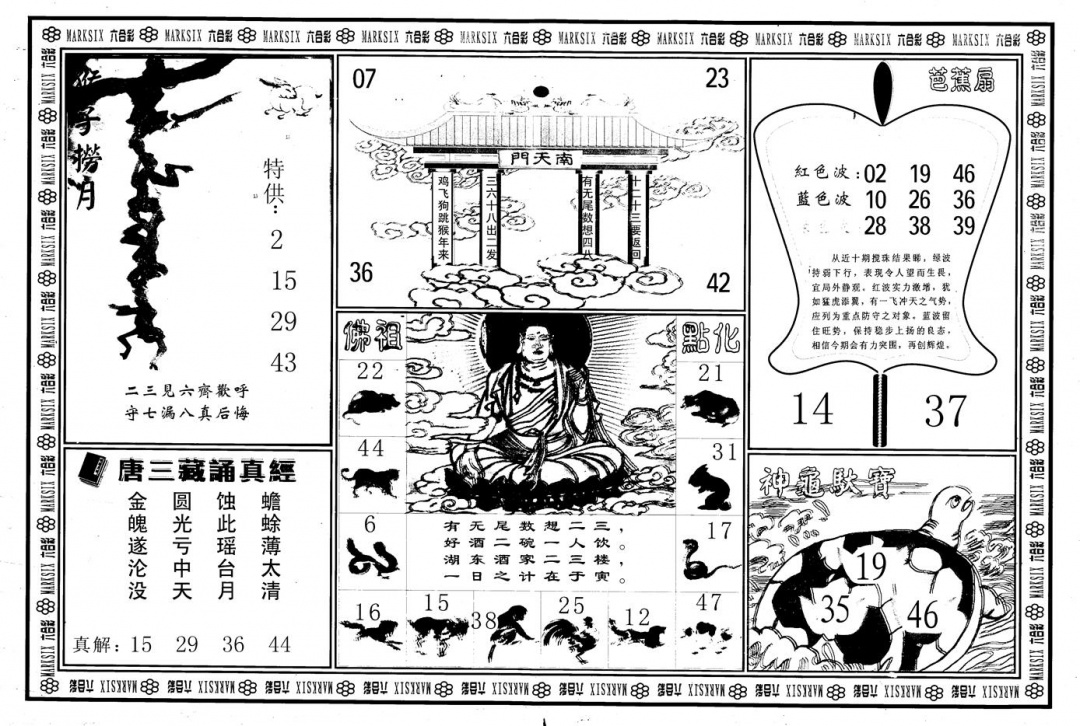 MARKSIX 六合彩 MARKSIX 六合彩 MARKSIX 六合彩 MARKSIX 六合彩 MARKSIX 六合彩 MARKSIX 六合彩 MARKSIX 六合彩 MARKSIX 六合彩 MARKSIX 六合彩 MARKSIX 六合彩
猴子撈月
特供：
2
15
29
43
二三見六齊歡呼
守七漏八真后悔
07
23
南天門
鸡飞狗跳猴年来
三六十八出二发
有无尾数想四八
十二十三要返回
36
42
芭蕉扇
紅色波：02 19 46
藍色波 10 26 36
28 38 39
从近十期搅珠结果睇，绿波
持弱下行，表现令人望而生畏，
宜局外静观。红波实力激增，犹
如猛虎添翼，有一飞冲天之气势，
应列为重点防守之对象。蓝波留
住旺势，保持稳步上扬的良态，
相信今期会有力突围，再创辉煌。
14
37
佛祖
點化
22
21
44
31
6
17
有无尾数想二三，
好酒二碗一人饮。
湖东酒家计三楼，
一日之计在于寅。
16
15
38
25
12
47
唐三藏誦真經
蟾蜍薄太清
蚀此瑶台月
圆光亏中天
金魄遂沦没
真解：15 29 36 44
神龜馱寶
19
35
46